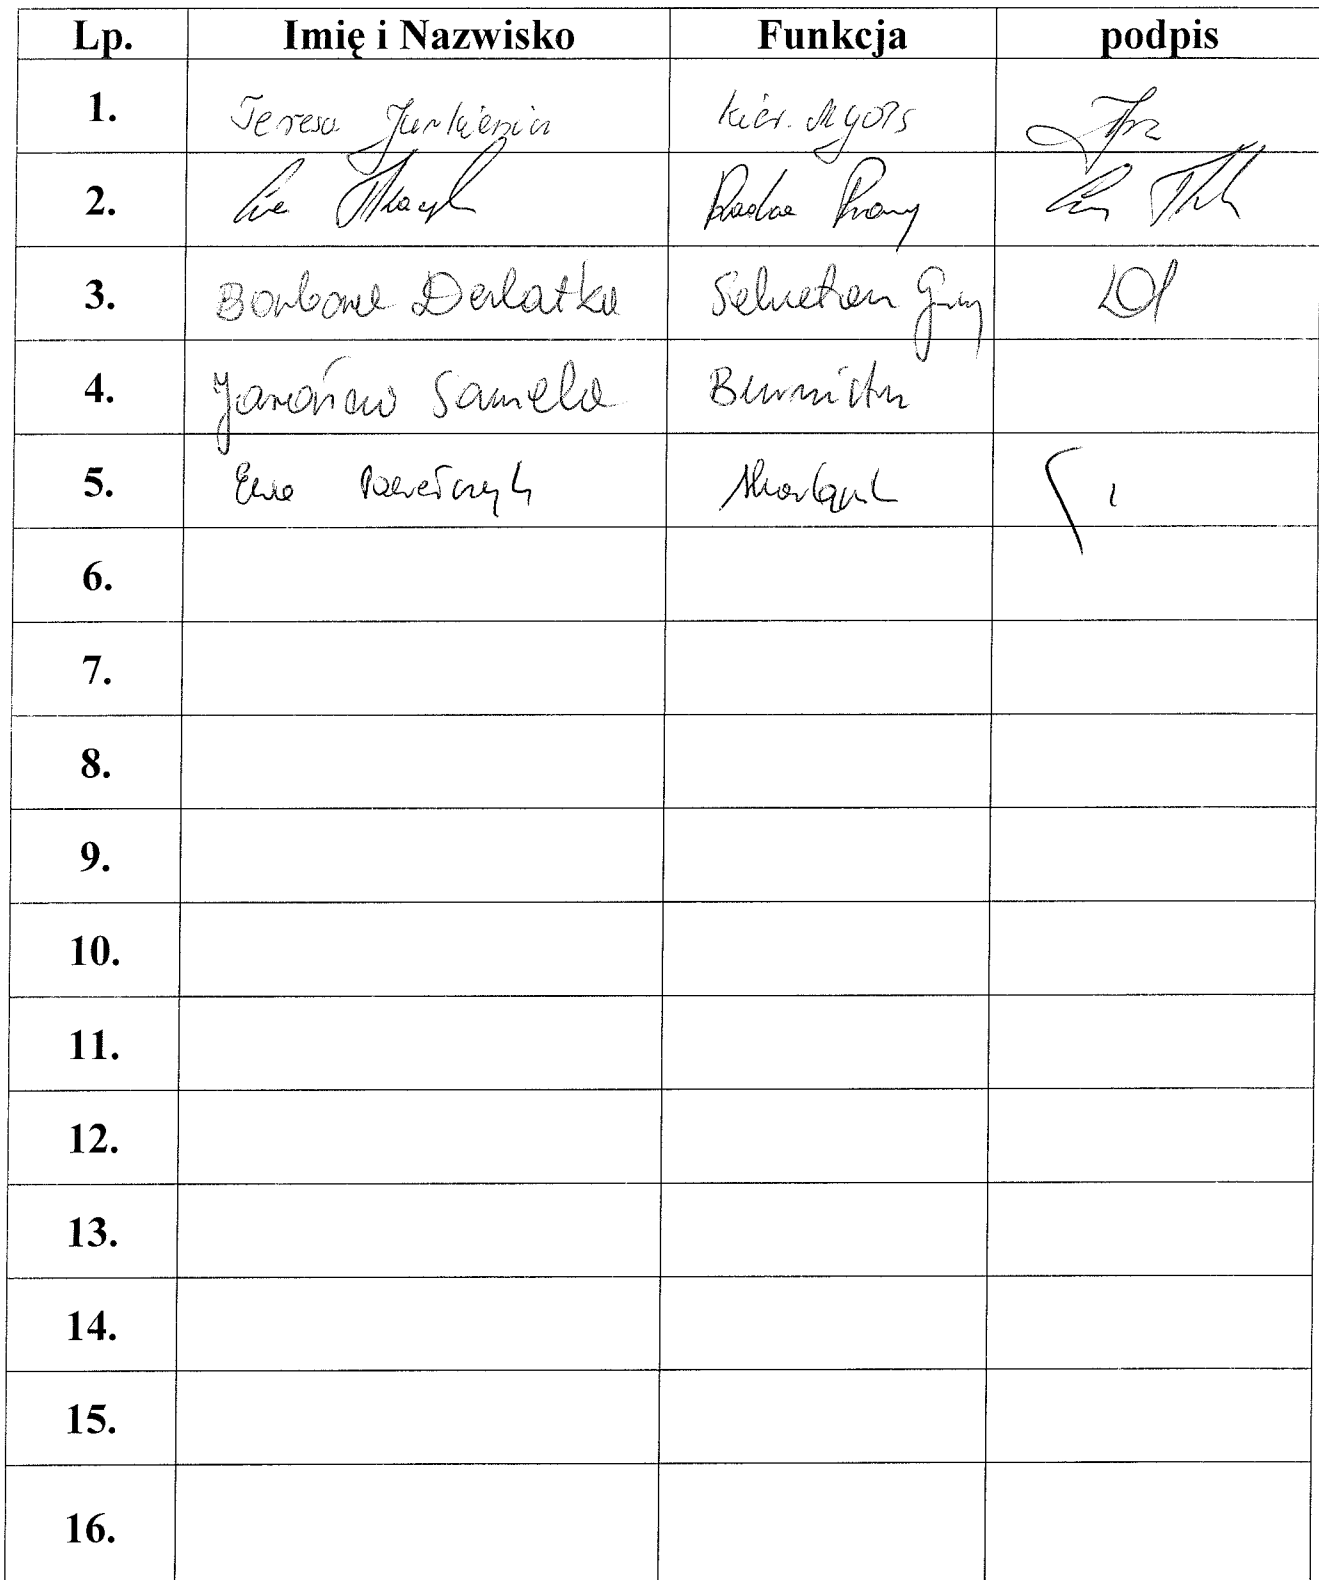 Lp. Imię i Nazwisko Funkcja podpis
1. Teresa Kier. MGOPS
2. Ewa Tkaczyk Radca Prawny
3. Barbara Derlatka Sekretarz Gminy
4. Jarosław Samela Burmistrz
5. Ewa Pawełczyk Skarbnik
6.
7.
8.
9.
10.
11.
12.
13.
14.
15.
16.